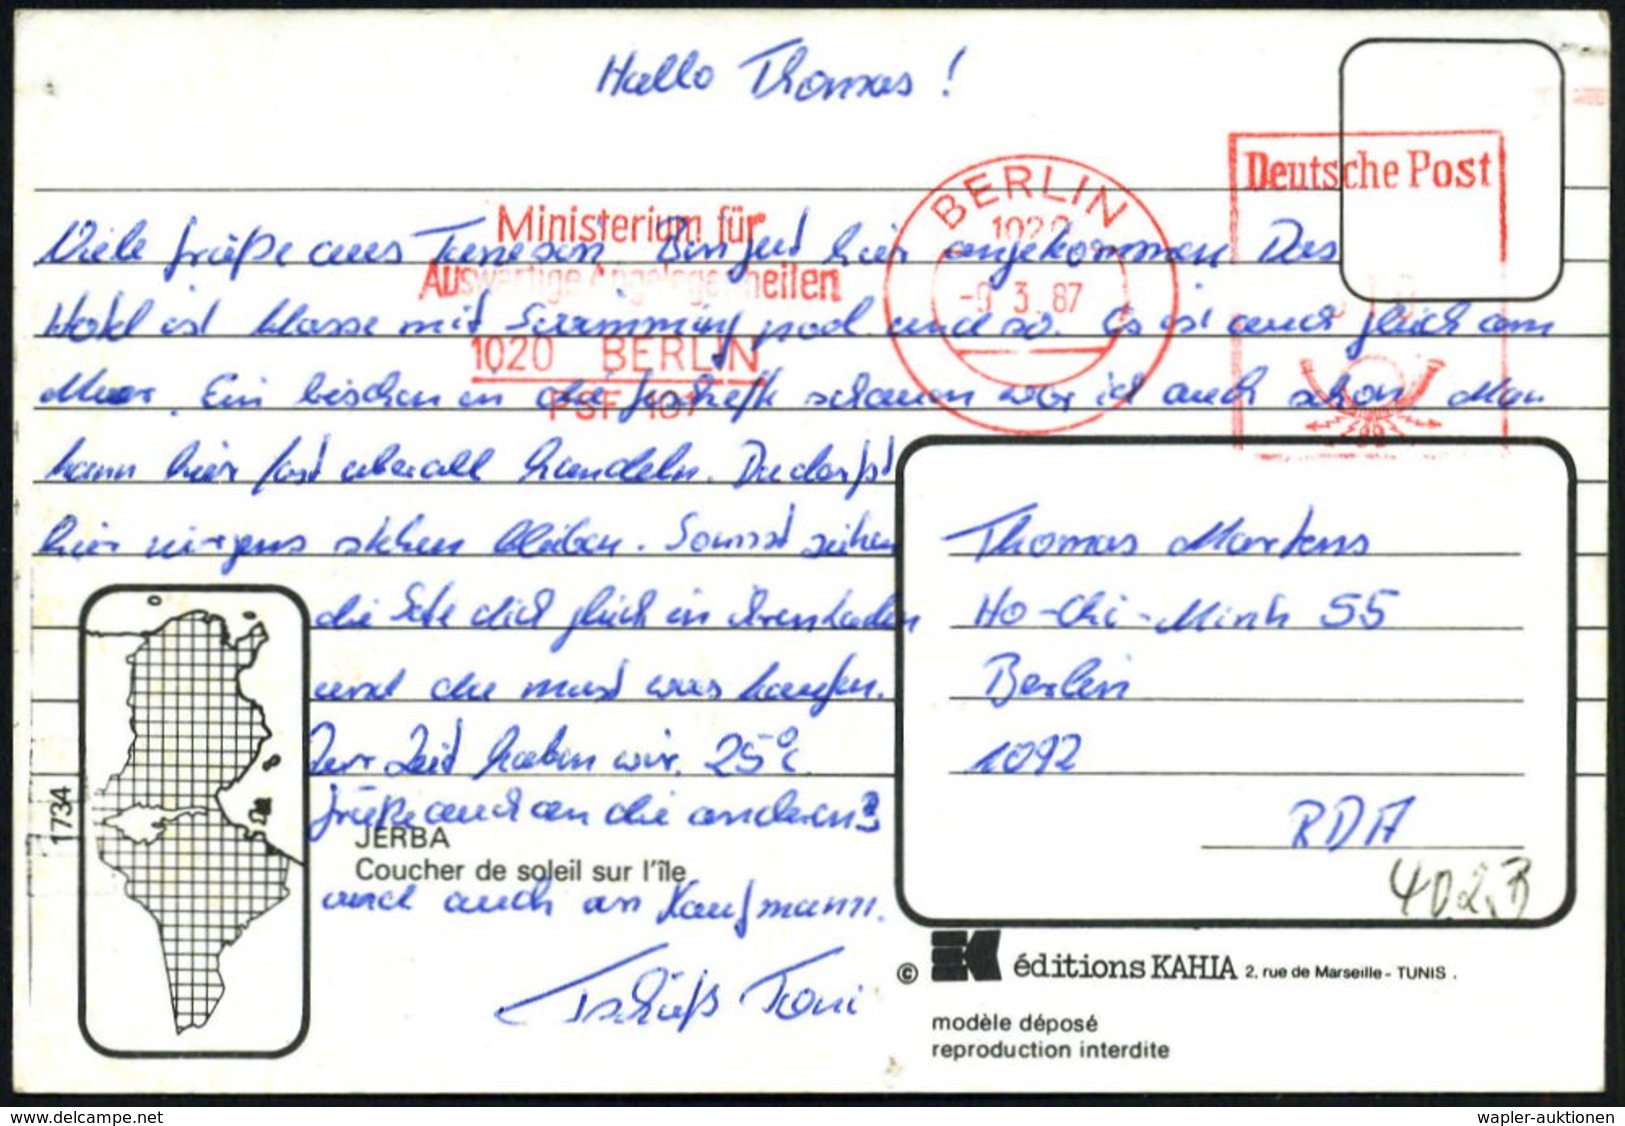 Hallo Thomas!
Deutsche Post
BERLIN
1020
-9.3.87
Ministerium für
Auswärtige Angelegenheiten
1020 BERLIN
PSF 107
Viele Grüße aus Tunesien. Bin gut hier angekommen Das
Hotel ist klasse mit Swimming pool und so. Es ist auch gleich am
Meer. Ein bischen in die Geschäfte schauen war ich auch schon. Man
kann hier fast überall handeln. Du darfst
hier nirgens stehen bleiben. Sonst ziehen
die Leute dich gleich in ihren Laden
und du must was kaufen.
Zur Zeit haben wir 25°C
Grüße auch an die anderen
und auch an Kaufmann.
Tschüß Toni
Thomas Martens
Ho-Chi-Minh 55
Berlin
1092
RDA
402,B
1734
JERBA
Coucher de soleil sur l'île
© éditions KAHIA 2, rue de Marseille - TUNIS.
modèle déposé
reproduction interdite
www.delcampe.net
wapler-auktionen